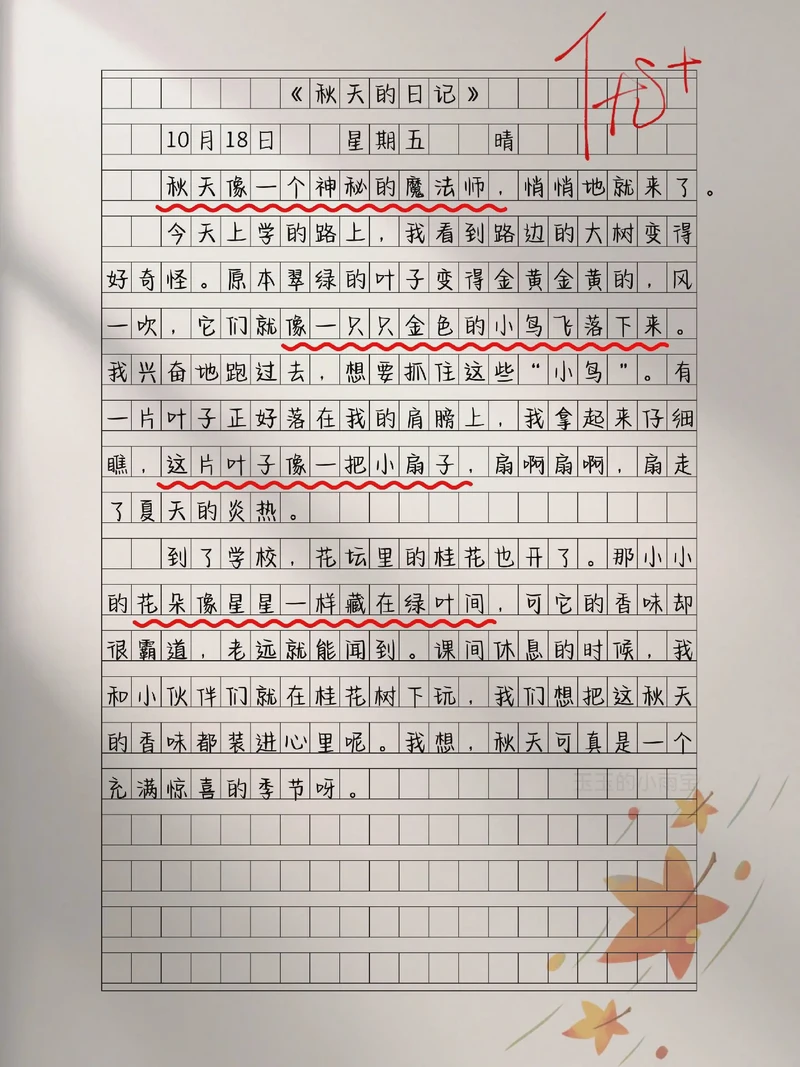 优+
《秋天的日记》
10月18日 星期五 晴
秋天像一个神秘的魔法师，悄悄地就来了。
今天上学的路上，我看到路边的大树变得
好奇怪。原本翠绿的叶子变得金黄金黄的，风
一吹，它们就像一只只金色的小鸟飞落下来。
我兴奋地跑过去，想要抓住这些“小鸟”。有
一片叶子正好落在我的肩膀上，我拿起来仔细
瞧，这片叶子像一把小扇子，扇啊扇啊，扇走
了夏天的炎热。
到了学校，花坛里的桂花也开了。那小小
的花朵像星星一样藏在绿叶间，可它的香味却
很霸道，老远就能闻到。课间休息的时候，我
和小伙伴们就在桂花树下玩，我们想把这秋天
的香味都装进心里呢。我想，秋天可真是一个
充满惊喜的季节呀。
玉玉的小雨宝